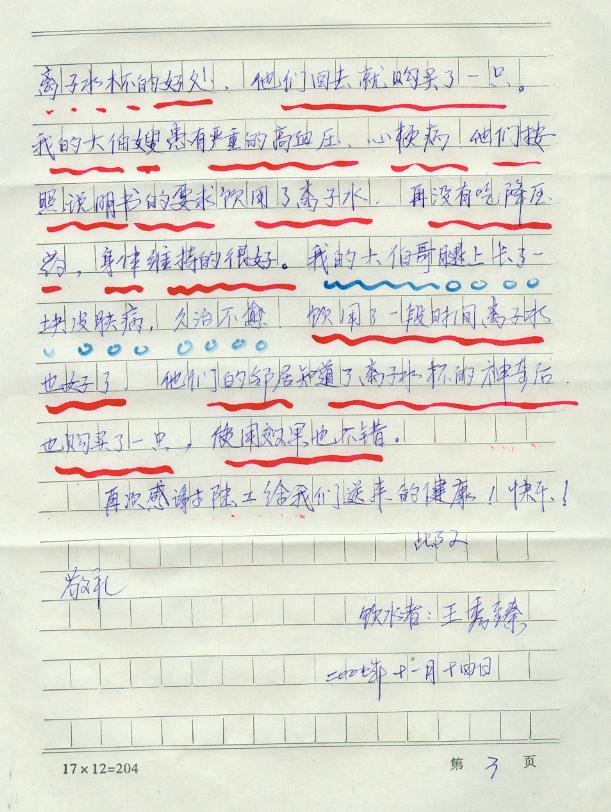 离子水杯的好处，他们回去就购买了一只。
我的大伯嫂患有严重的高血压、心梗病 他们按
照说明书的要求饮用了离子水，再没有吃降压
药，身体维持的很好。我的大伯哥腿上长了一
块皮肤病，久治不愈 饮用了一段时间离子水
也好了 他们的邻居知道了离子水杯的神奇后
也购买了一只，使用效果也不错。
再次感谢陆工给我们送来的健康！快乐！
此致
敬礼
饮水者：王秀臻
二00七年十一月十四日
17×12=204 第 3 页